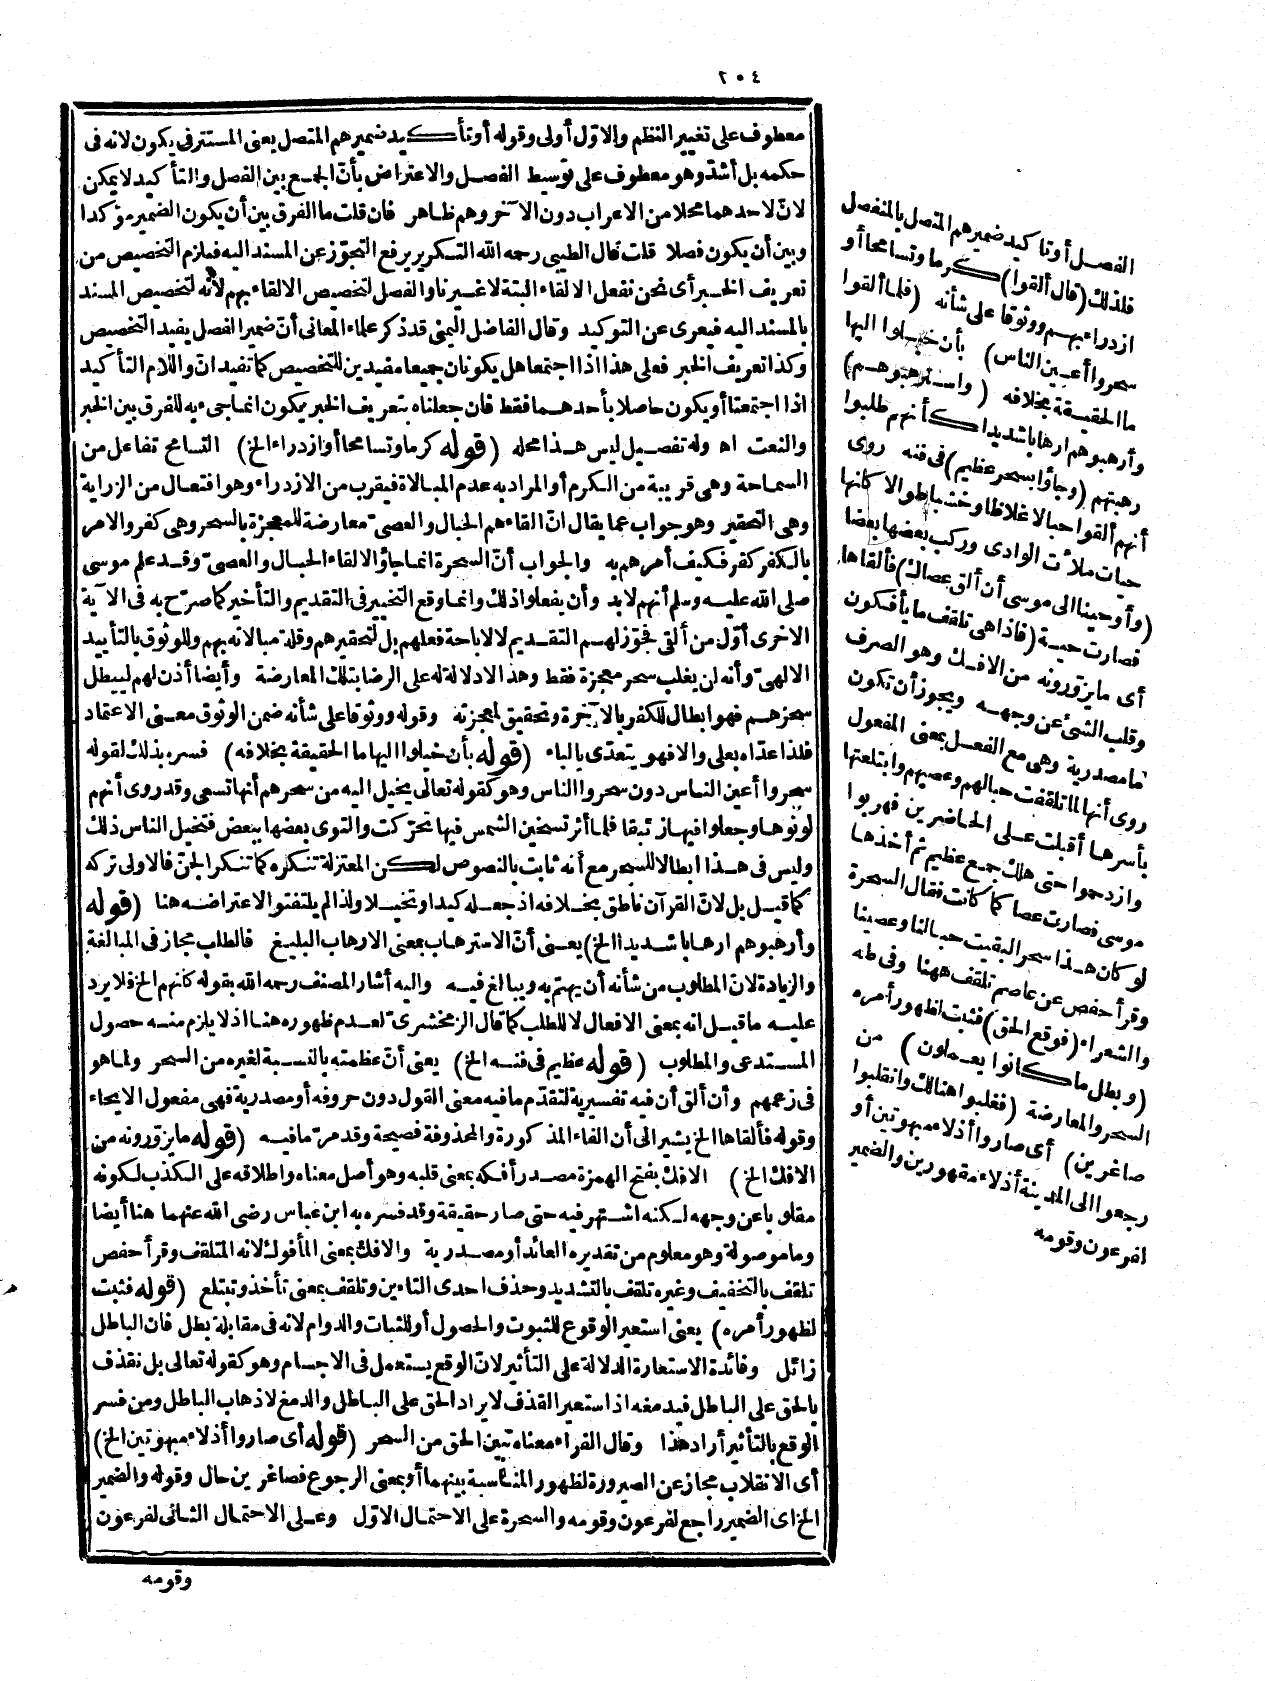 ٢٠٤
معطوف على تغيير النظم والاوّل أولى وقوله أو تأكيد ضميرهم المتصل يعنى المستتر فى يكون لانه فى
حكمه بل أشدّ وهو معطوف على توسيط الفصل والاعتراض بأنّ الجمع بين الفصل والتأكيد لا يمكن
لانّ لاحدهما محلا من الاعراب دون الآخر وهم ظاهر فان قلت ما الفرق بين أن يكون الضمير مؤكدا
وبين أن يكون فصلا قلت قال الطيبى رحمه الله التكرير يرفع التجوّز عن المسند اليه فيلزم التخصيص من
تعريف الخبر أى نحن نفعل الالقاء البتة لا غيرنا والفصل لتخصيص الالقاء بهم لأنه لتخصيص المسند
بالمسند اليه فيعرى عن التوكيد وقال الفاضل اليمنى قد ذكر علماء المعانى أنّ ضمير الفصل يفيد التخصيص
وكذا تعريف الخبر فعلى هذا اذا اجتمعا هل يكونان جميعا مفيدين للتخصيص كما تفيد انّ واللام التأكيد
اذا اجتمعتا أو يكون حاصلا بأحدهما فقط فان جعلناه بتعريف الخبر يكون انما جىء به للفرق بين الخبر
والنعت اه وله تفصيل ليس هذا محله (قوله كرما وتسامحا أو ازدراء الخ) التسامح تفاعل من
السماحة وهى قريبة من الكرم أو المراد به عدم المبالاة فيقرب من الازدراء وهو افتعال من الزراية
وهى التحقير وهو جواب عما يقال انّ القاءهم الحبال والعصىّ معارضة للمعجزة بالسحر وهى كفر والامر
بالكفر كفر فكيف أمرهم به والجواب أنّ السحرة انما جاؤا لالقاء الحبال والعصىّ وقد علم موسى
صلى الله عليه وسلم أنهم لا بد وأن يفعلوا ذلك وانما وقع التخيير فى التقديم والتأخير كما صرّح به فى الآية
الاخرى أوّل من ألقى فجوّز لهم التقديم لا لاباحة فعلهم بل لتحقيرهم وقلة مبالاته بهم وللوثوق بالتأييد
الالهىّ وأنه لن يغلب سحر معجزة فقط وهذا لا دلالة له على الرضا بتلك المعارضة وأيضا أذن لهم ليبطل
سحرهم فهو ابطال للكفر بالآخرة وتحقيق لمعجزته وقوله ووثوقا على شأنه ضمن الوثوق معنى الاعتماد
فلذا عدّاه بعلى والا فهو يتعدّى بالباء (قوله بأن خيلوا اليها ما الحقيقة بخلافه) فسره بذلك لقوله
سحروا أعين الناس دون سحروا الناس وهو كقوله تعالى يخيل اليه من سحرهم أنها تسعى وقد روى أنهم
لوّنوها وجعلوا فيها زئبقا فلما أثر تسخين الشمس فيها تحرّكت والتوى بعضها ببعض فتخيل الناس ذلك
وليس فى هذا ابطالا للسحر مع أنه ثابت بالنصوص لكن المعتزلة تنكره كما تنكر الجنّ فالاولى تركه
كما قيل بل لانّ القرآن ناطق بخلافه اذ جعله كيدا وتخييلا ولذا لم يلتفتوا لاعتراضه هنا (قوله
وأرهبوهم ارهابا شديدا الخ) يعنى أنّ الاسترهاب بمعنى الارهاب البليغ فالطلب مجاز فى المبالغة
والزيادة لانّ المطلوب من شأنه أن يهتم به ويبالغ فيه واليه أشار المصنف رحمه الله بقوله كانهم الخ فلا يرد
عليه ما قيل انه بمعنى الافعال لا للطلب كما قال الزمخشرىّ لعدم ظهوره هنا اذ لا يلزم منه حصول
المستدعى والمطلوب (قوله عظيم فى فنه الخ) يعنى أنّ عظمته بالنسبة لغيره من السحر ولما هو
فى زعمهم وأن ألق أن فيه تفسيرية لتقدّم ما فيه معنى القول دون حروفه أو مصدرية فهى مفعول الايحاء
وقوله فألقاها الخ يشير الى أن الفاء المذكورة والمحذوفة فصيحة وقد مرّ ما فيه (قوله ما يزوّرونه من
الافك الخ) الافك بفتح الهمزة مصدر أفكه بمعنى قلبه وهو أصل معناه واطلاقه على الكذب لكونه
مقلوبا عن وجهه لكنه اشتهر فيه حتى صار حقيقة وقد فسره به ابن عباس رضى الله عنهما هنا أيضا
وما موصولة وهو معلوم من تقديره العائد أو مصدرية والافك بمعنى المأفوك لانه المتلقف وقرأ حفص
تلقف بالتخفيف وغيره تلقف بالتشديد وحذف احدى التاءين وتلقف بمعنى تأخذ وتبتلع (قوله فثبت
لظهور أمره) يعنى استعير الوقوع للثبوت والحصول أو للثبات والدوام لانه فى مقابلة بطل فان الباطل
زائل وفائدة الاستعارة الدلالة على التأثير لانّ الوقع يستعمل فى الاجسام وهو كقوله تعالى بل نقذف
بالحق على الباطل فيدمغه اذا استعير القذف لايراد الحق على الباطل والدمغ لاذهاب الباطل ومن فسر
الوقع بالتأثير أراد هذا وقال الفراء معناه تبين الحق من السحر (قوله أى صاروا أذلاء مبهوتين الخ)
أى الانقلاب مجاز عن الصيرورة لظهور المناسبة بينهما أو بمعنى الرجوع فصاغرين حال وقوله والضمير
الخ اى الضمير راجع لفرعون وقومه والسحرة على الاحتمال الاوّل وعلى الاحتمال الثانى لفرعون
وقومه
الفصل أو تاكيد ضميرهم المتصل بالمنفصل
فلذلك (قال ألقوا) كرما وتسامحا أو
ازدراء بهم ووثوقا على شأنه (فلما ألقوا
سحروا أعين الناس) بأن خيلوا اليها
ما الحقيقة بخلافه (واسترهبوهم)
وأرهبوهم ارهابا شديدا كأنهم طلبوا
رهبتهم (وجاؤا بسحر عظيم) فى فنه روى
أنهم ألقوا حبالا غلاظا وخشبا طوالا كانها
حيات ملأت الوادى وركب بعضها بعضا
(وأوحينا الى موسى أن ألق عصاك) فألقاها
فصارت حية (فاذا هى تلقف ما يأفكون
أى ما يزوّرونه من الافك وهو الصرف
وقلب الشىء عن وجهه ويجوز أن تكون
ما مصدرية وهى مع الفعل بمعنى المفعول
روى أنها لما تلقفت حبالهم وعصيهم وابتلعتها
بأسرها أقبلت على الحاضرين فهربوا
وازدحموا حتى هلك جمع عظيم ثم أخذها
موسى فصارت عصا كما كانت فقال السحرة
لو كان هذا سحرا لبقيت حبالنا وعصينا
وقرأ حفص عن عاصم تلقف ههنا وفى طه
والشعراء (فوقع الحق) فثبت لظهور أمره
(وبطل ما كانوا يعملون) من
السحر والمعارضة (فغلبوا هنالك وانقلبوا
صاغرين) أى صاروا أذلاء مبهوتين أو
رجعوا الى المدينة أذلاء مقهورين والضمير
لفرعون وقومه